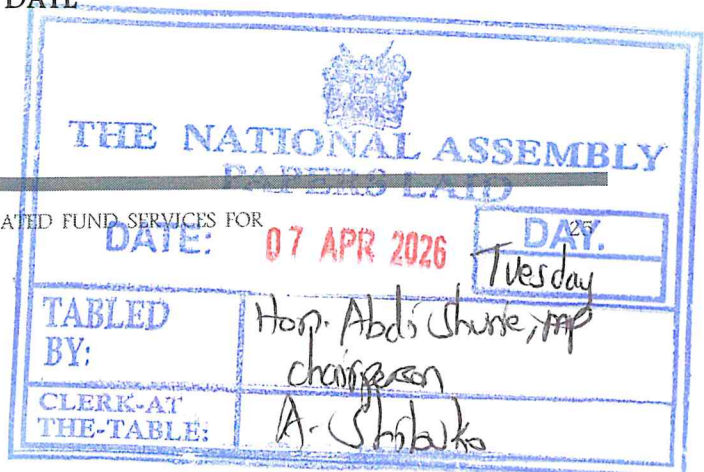 DATE
THE NATIONAL ASSEMBLY
PAPERS LAID
ATED FUND SERVICES FOR
25
DATE: 07 APR 2026
DAY.
Tuesday
TABLED BY:
Hon. Abdi Shurie, mp
chairperson
CLERK-AT THE-TABLE:
A. Shibuko